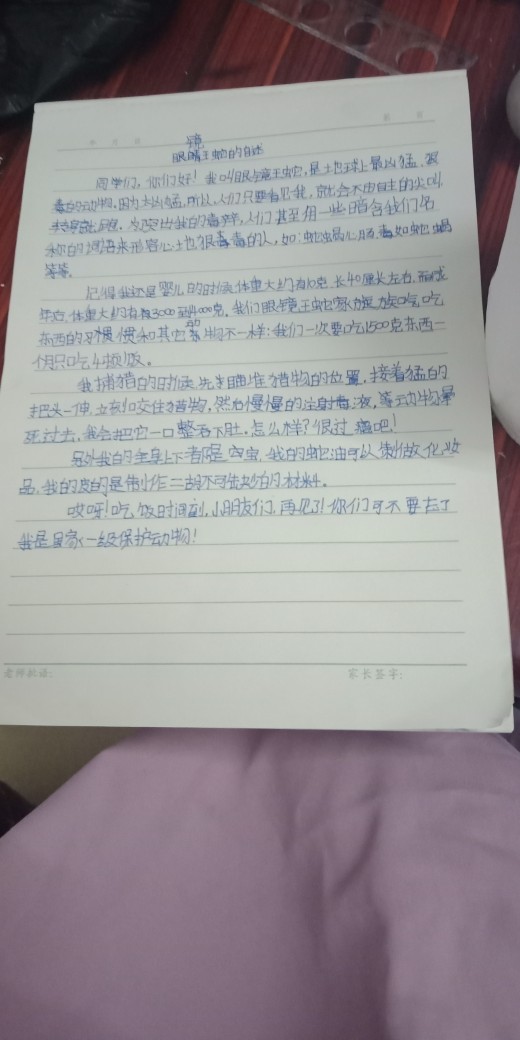 镜
眼睛王蛇的自述
同学们，你们好！我叫眼镜王蛇，是地球上最凶猛、狠
毒的动物，因为太凶猛，所以，人们只要看见我，就会不由自主的尖叫，
为突出我的毒辣，人们甚至用一些暗含我们名
称的词语来形容心地狠毒的人，如：蛇蝎心肠、毒如蛇蝎
等等。
记得我还是婴儿的时候，体重大约有10克，长40厘米左右，而成
年后，体重大约有3000至4000克。我们眼镜王蛇家族吃
东西的习惯和其它动物不一样：我们一次要吃1500克东西一
个月只吃4顿饭。
我捕猎的时候，先瞄准猎物的位置，接着猛的
把头一伸，立刻咬住猎物，然后慢慢的注射毒液，等动物晕
死过去，我会把它一口整吞下肚。怎么样？很过瘾吧！
另外我的全身上下都是宝，我的蛇油可以制做化妆
品，我的皮的是制作二胡不可缺少的材料。
哎呀！吃饭时间到，小朋友们，再见了！你们可不要
我是国家一级保护动物！
老师批语：
家长签字：